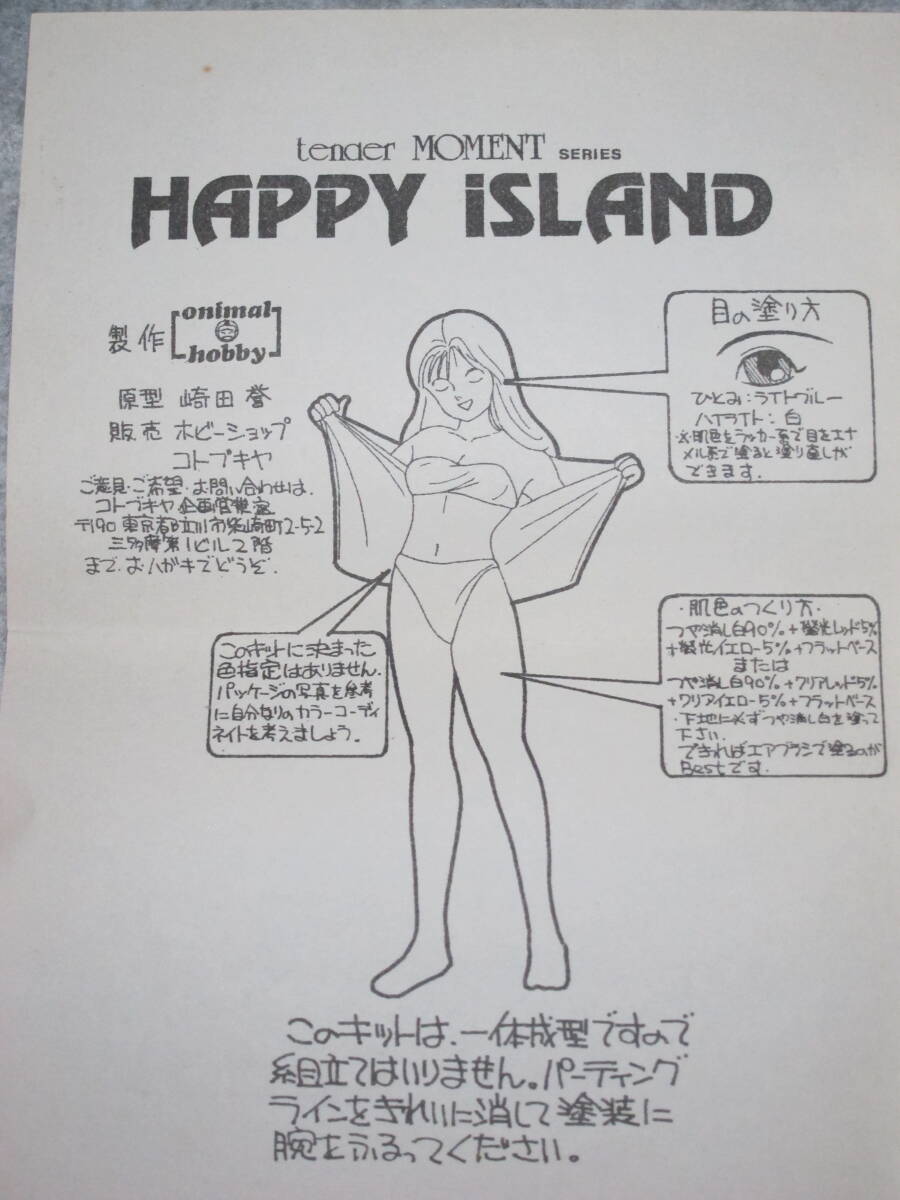 tender MOMENT SERIES
HAPPY iSLAND
製作
onimal
hobby
原型 崎田誉
販売 ホビーショップ
コトブキヤ
ご意見・ご希望・お問い合わせは、
コトブキヤ企画営業室
〒190 東京都立川市柴崎町2-5-2
三多摩第1ビル2階
まで、おハガキでどうぞ。
目の塗り方
ひとみ:ライトブルー
ハイライト:白
※肌色をラッカー系で目をエナ
メル系で塗ると塗り直しが
できます。
このキットに決まった
色指定はありません。
パッケージの写真を参考
に自分なりのカラーコーディ
ネイトを考えましょう。
・肌色のつくり方・
つや消し白90%+螢光レッド5%
+螢光イエロー5%+フラットベース
または
つや消し白90%+クリアレッド5%
+クリアイエロー5%+フラットベース
・下地に必ずつや消し白を塗って
下さい。
できればエアブラシで塗るのが
Bestです。
このキットは、一体成型ですので
組立てはいりません。パーティング
ラインをきれいに消して塗装に
腕をふるってください。